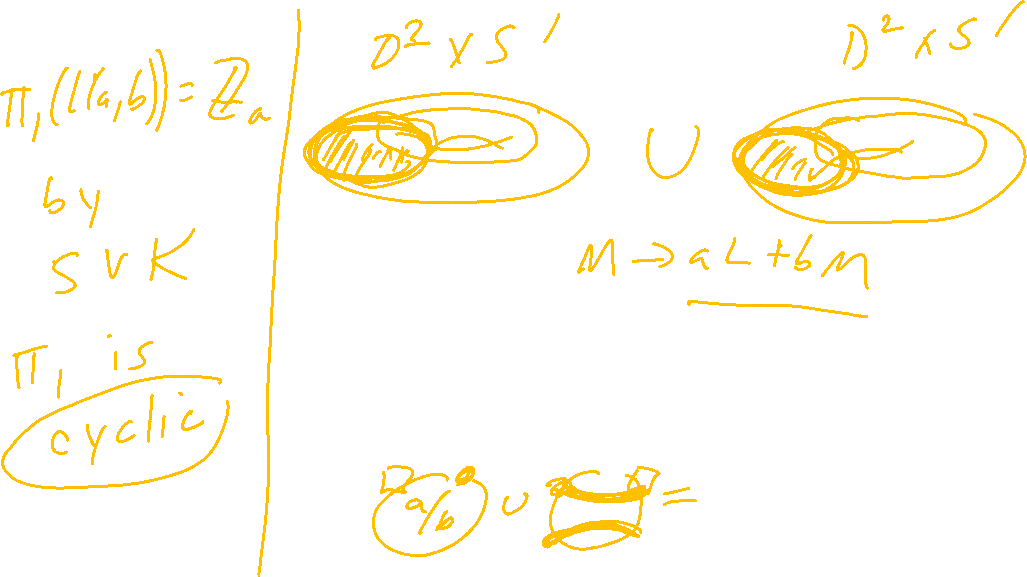 π₁(L(a,b)) = ℤₐ
by
SVK
π₁ is
cyclic
D² × S¹
D² × S¹
∪
M → aL + bM
a/b ∪ =